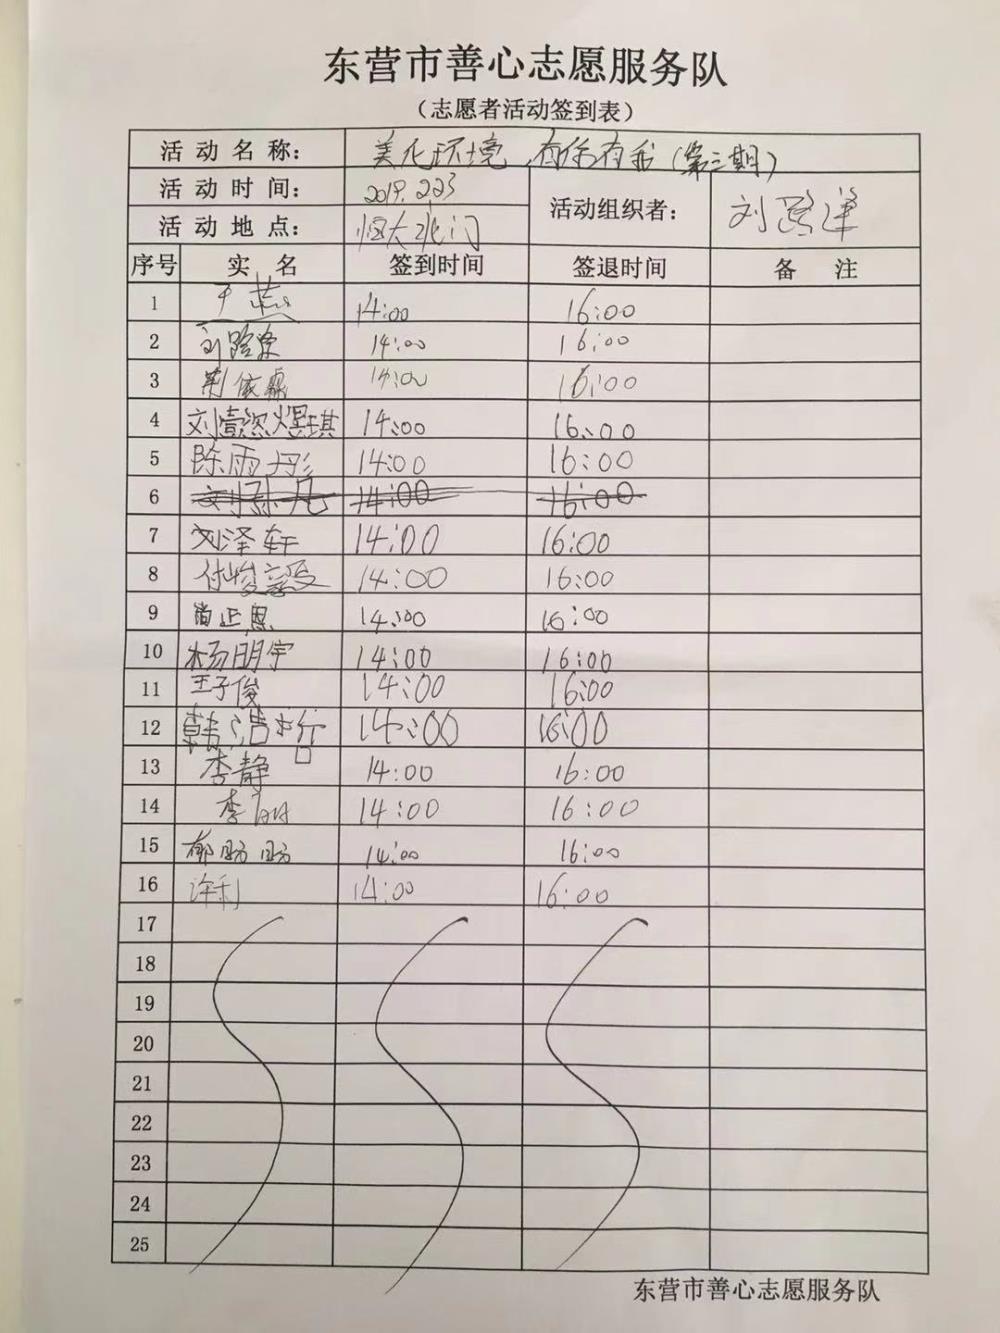 东营市善心志愿服务队
（志愿者活动签到表）
活动名称： 美化环境，有你有我（第三期）
活动时间： 2019.2.23 活动组织者： 刘
活动地点： 恒大北门
序号 实名 签到时间 签退时间 备注
1 于燕 14:00 16:00
2 刘路 14:00 16:00
3 荆依霖 14:00 16:00
4 刘壹 琪 14:00 16:00
5 陈雨彤 14:00 16:00
6 刘 凡 14:00 16:00
7 刘泽轩 14:00 16:00
8 付峻毅 14:00 16:00
9 尚正恩 14:00 16:00
10 杨明宇 14:00 16:00
11 王子俊 14:00 16:00
12 韩浩 14:00 16:00
13 李静 14:00 16:00
14 李 14:00 16:00
15 郁盼盼 14:00 16:00
16 许利 14:00 16:00
17
18
19
20
21
22
23
24
25
东营市善心志愿服务队